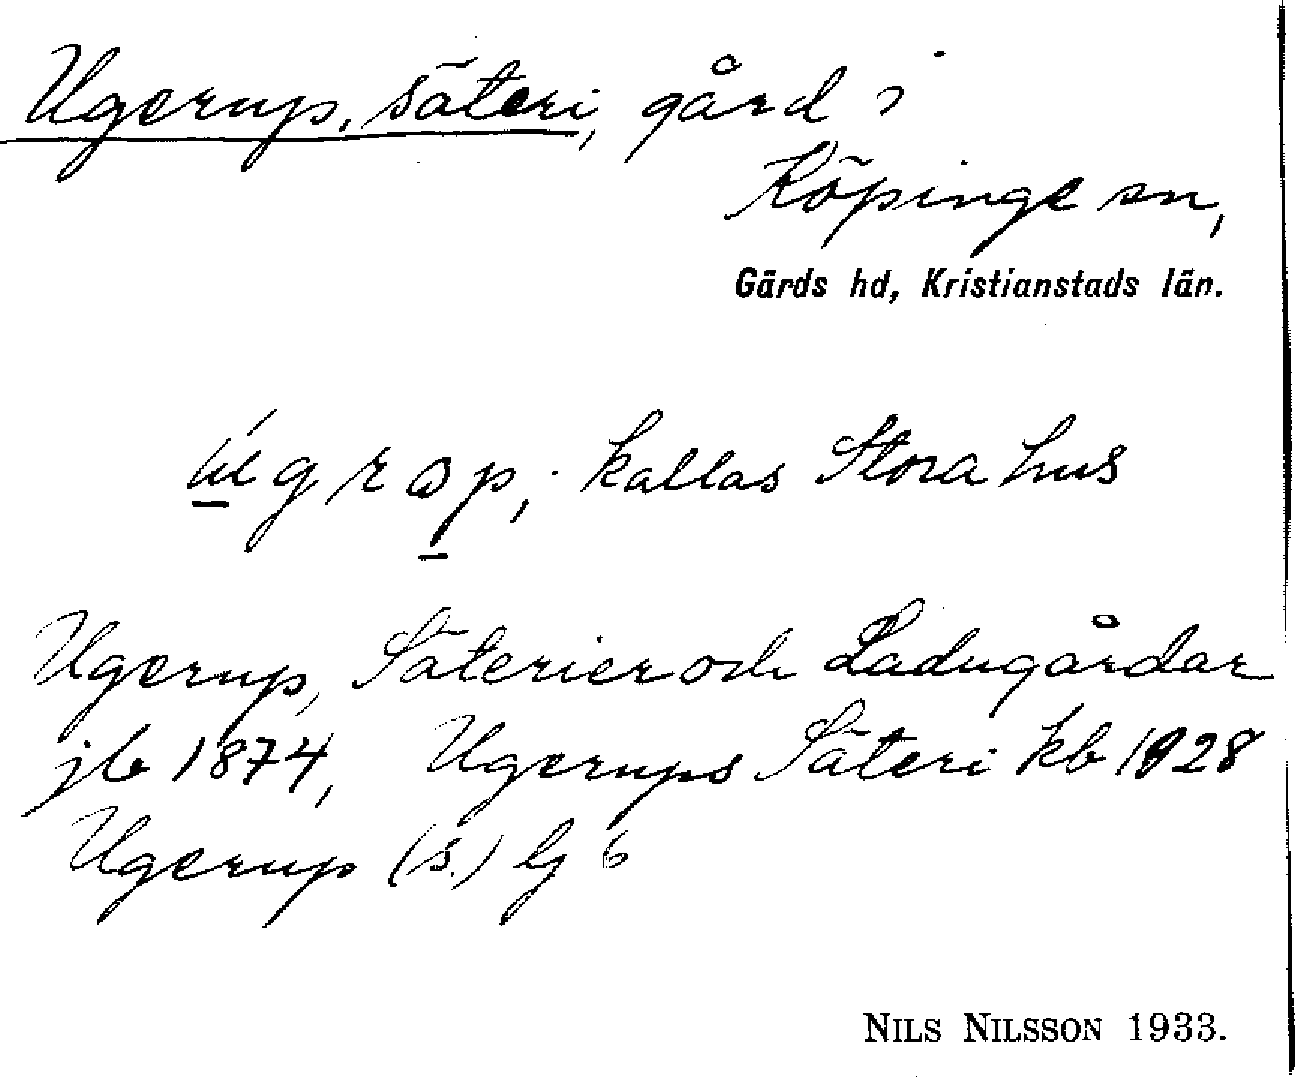 Ugerup, säteri, gård i
Köpinge sn,
Gärds hd, Kristianstads län.
kallas Stora hus
Ugerup, Säterier och Ladugårdar
jb 1874, Ugerups Säteri kb 1928
Ugerup (s.) lj 6
NILS NILSSON 1933.